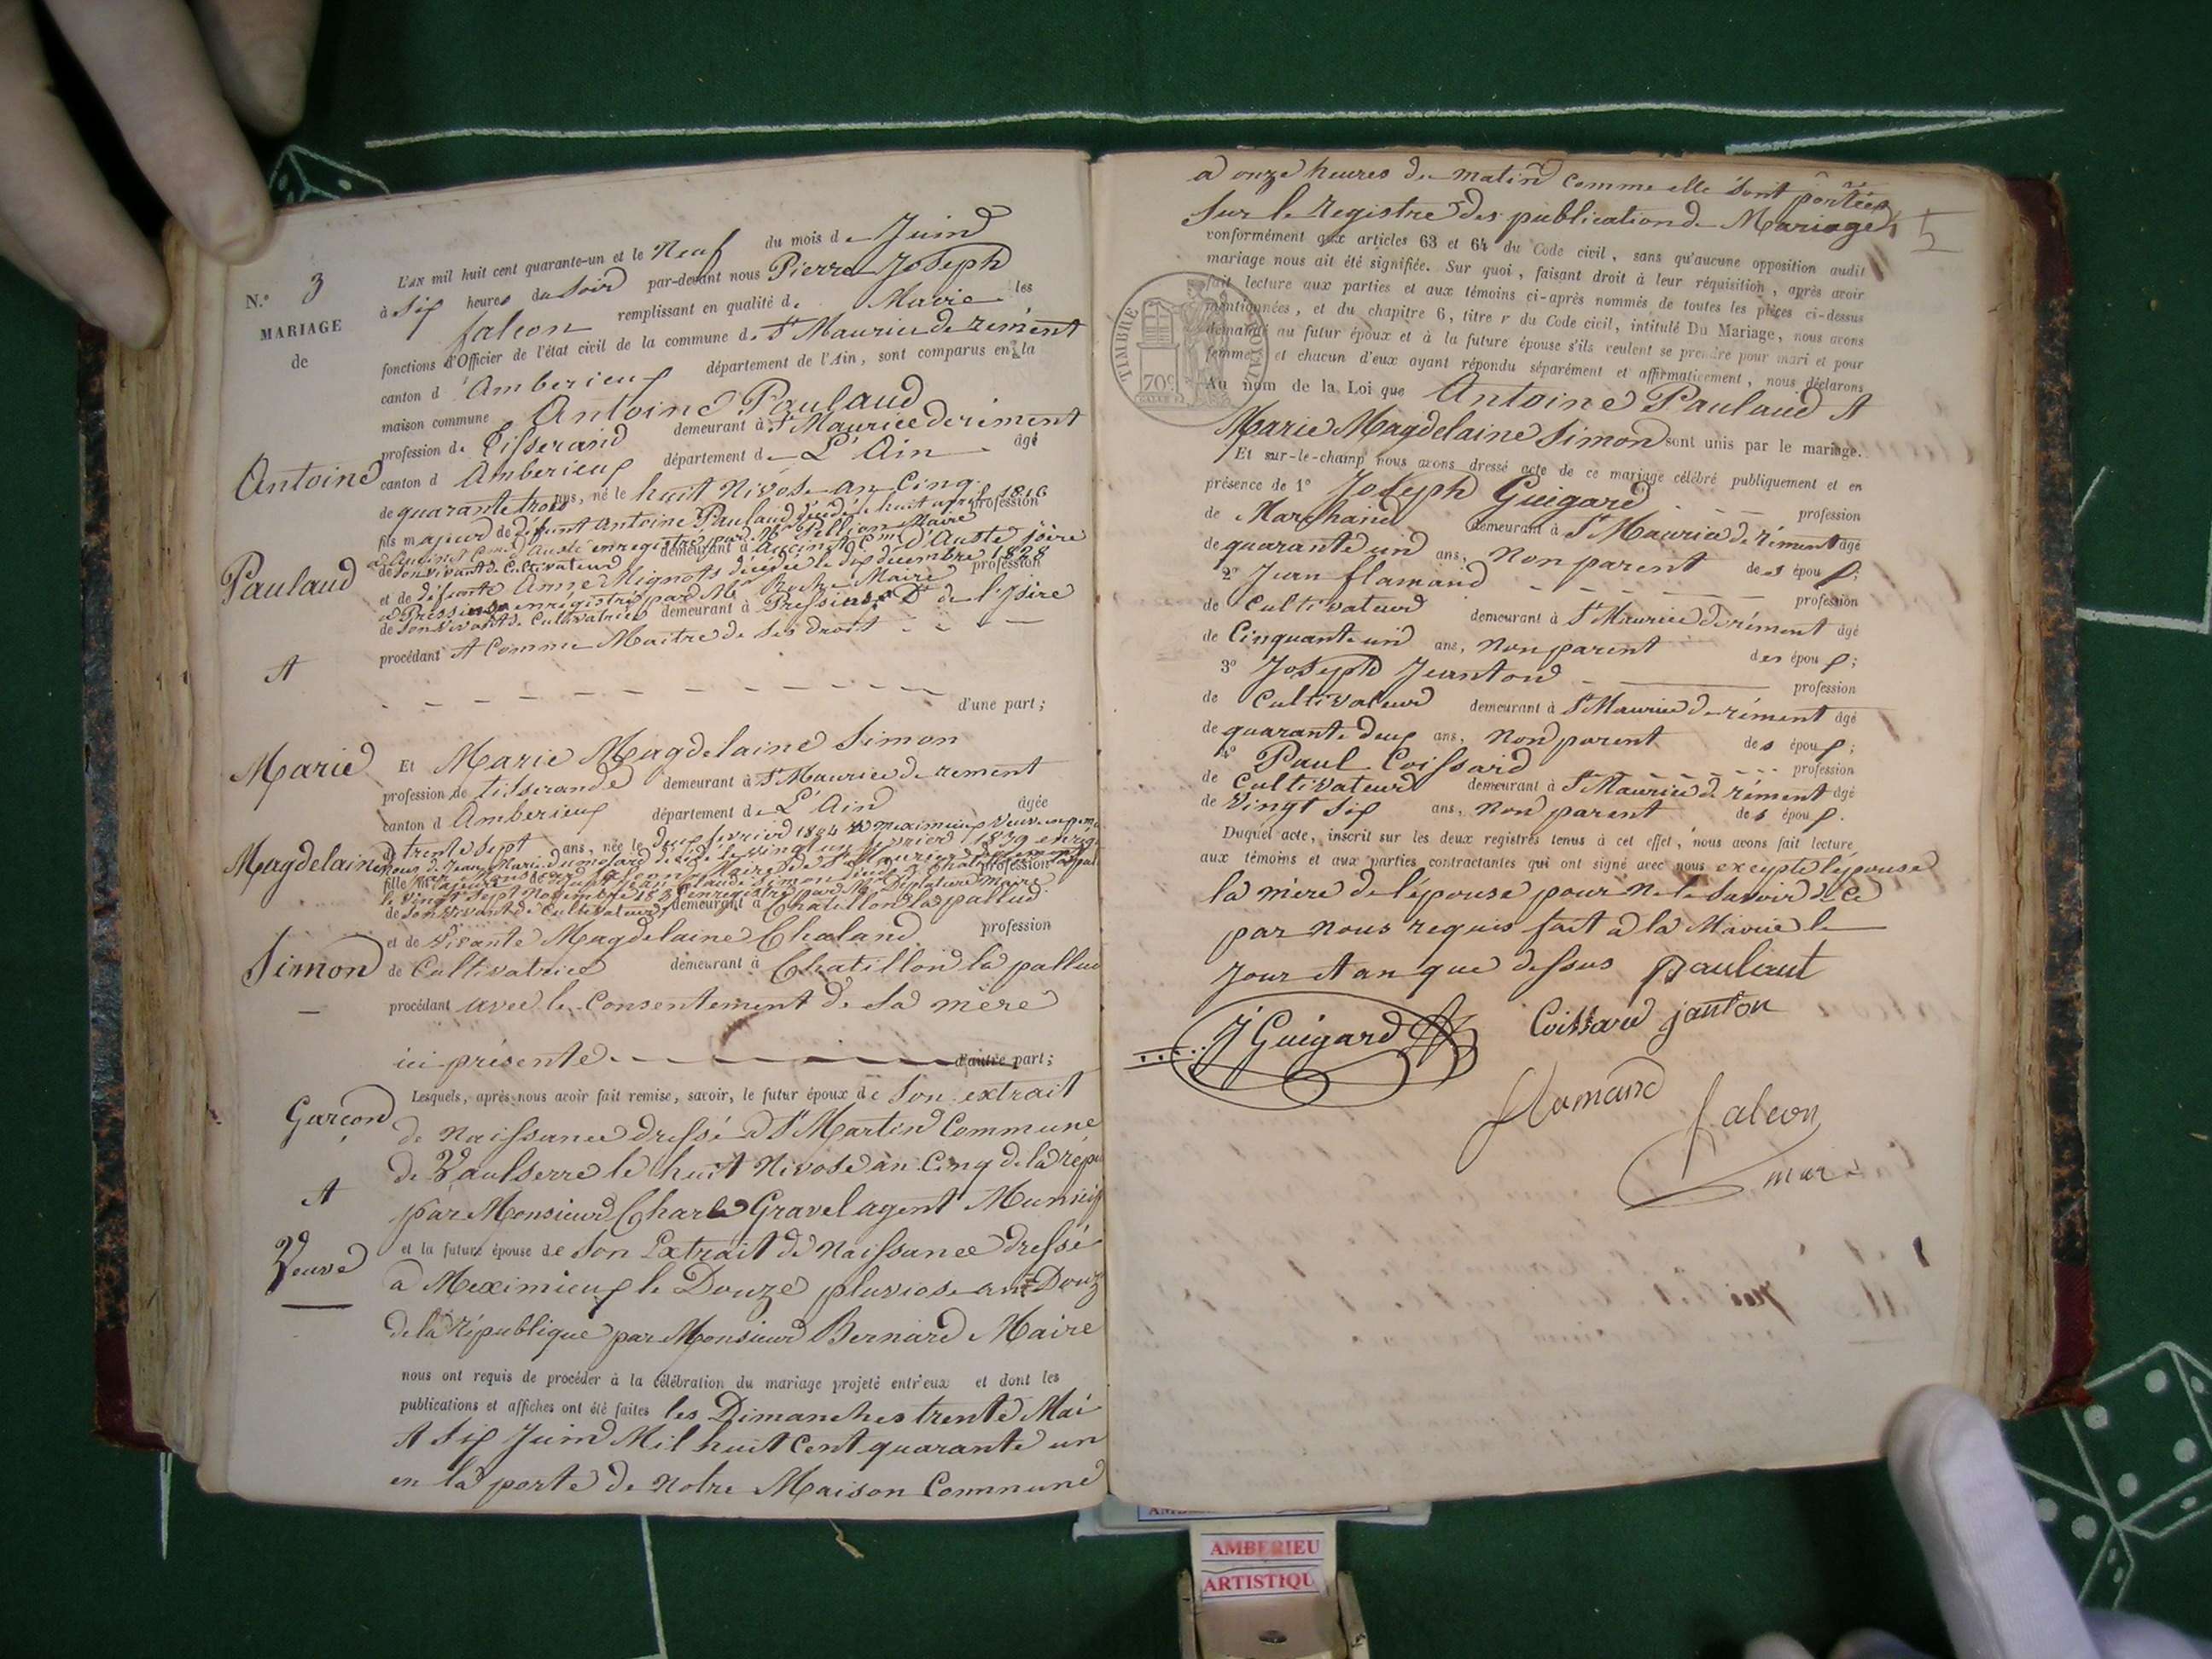 N.o 3
MARIAGE
de
Antoine
Paulaud
et
Marie
Magdelaine
Simon
Garcon
et
Veuve
L'AN mil huit cent quarante-un et le Neuf du mois de Juin
à Six heures du Soir par-devant nous Pierre Joseph
falcon remplissant en qualité de Maire les
fonctions d'Officier de l'état civil de la commune de St Maurice de rément
canton d'Amberieux département de l'Ain, sont comparus en la
maison commune Antoine Paulaud
profession de Tisserand demeurant à St Maurice de rément
canton d Amberieux département de L'Ain âgé
de quarante trois ans, né le huit Nivose an Cinq
fils majeur de défunt Antoine Paulaud décédé le huit 1816 profession
enregistré par Mr Pellion Maire
de Son vivant de Cultivateur demeurant à
et de défunte Anne Mignots décédée le dix decembre 1828 profession
à Pressins enregistré par Mr Maire
de Son vivant de Cultivatrice demeurant à Pressins Dt de l'isire
procédant et Comme Maitre de Ses droit
d'une part;
Et Marie Magdelaine Simon
profession de tisserande demeurant à St Maurice de rement
canton d Amberieux département de L'Ain âgée
de trente Sept ans, née le deux fevrier 1804 à meximieux Veuve
de Jean Marie décédé le vingt un 1839
fille Majeure Claude Simon profession
le vingt Sept Novembre enregistré par Mr Maire
de Son vivant de Cultivateur demeurant à Chatillon la pallud
et de Vivante Magdelaine Chaland profession
de Cultivatrice demeurant à Chatillon la pallud
procédant avec le Consentement de Sa mère
ici présente d'autre part;
Lesquels, après nous avoir fait remise, savoir, le futur époux de Son extrait
de Naissance dressé à St Martin Commune
de Vaulserre le huit Nivose an Cinq de la répu
par Monsieur Charle Gravel agent Municip
et la future épouse de Son Extrait de Naissance dressé
à Meximieux le Douze pluviose an Douz
de la république par Monsieur Bernard Maire
nous ont requis de procéder à la célébration du mariage projeté entr'eux et dont les
publications et affiches ont été faites les Dimanches trente Mai
et Six Juin Mil huit Cent quarante un
en la porte de Notre Maison Commune
a onze heures du matin comme elle Sont portées
Sur le Registre des publication de Mariage 5
conformément aux articles 63 et 64 du Code civil, sans qu'aucune opposition audit
mariage nous ait été signifiée. Sur quoi, faisant droit à leur réquisition, après avoir
fait lecture aux parties et aux témoins ci-après nommés de toutes les pièces ci-dessus
mentionnées, et du chapitre 6, titre v du Code civil, intitulé Du Mariage, nous avons
demandé au futur époux et à la future épouse s'ils veulent se prendre pour mari et pour
femme, et chacun d'eux ayant répondu séparément et affirmativement, nous déclarons
Au nom de la Loi que Antoine Paulaud et
Marie Magdelaine Simon sont unis par le mariage.
TIMBRE ROYAL
70c.
Et sur-le-champ nous avons dressé acte de ce mariage célébré publiquement et en
présence de 1o Joseph Guigard profession
de Marchand demeurant à St Maurice de rément âgé
de quarante un ans, Non parent des époux;
2o Jean flamand profession
de Cultivateur demeurant à St Maurice de rément âgé
de Cinquante un ans, Non parent des époux;
3o Joseph Jeanton profession
de Cultivateur demeurant à St Maurice de rément âgé
de quarante deux ans, Non parent des époux;
4o Paul Coissard profession
de Cultivateur demeurant à St Maurice de rément âgé
de Vingt Six ans, Non parent des époux.
Duquel acte, inscrit sur les deux registres tenus à cet effet, nous avons fait lecture
aux témoins et aux parties contractantes qui ont signé avec nous excepté l'épouse
la mère de l'épouse pour ne le Savoir de ce
par Nous requis fait à la Mairie le
Jour et an que dessus Paulaut
J Guigard Coissard janton
flamand falcon
mare
AMBERIEU
ARTISTIQU